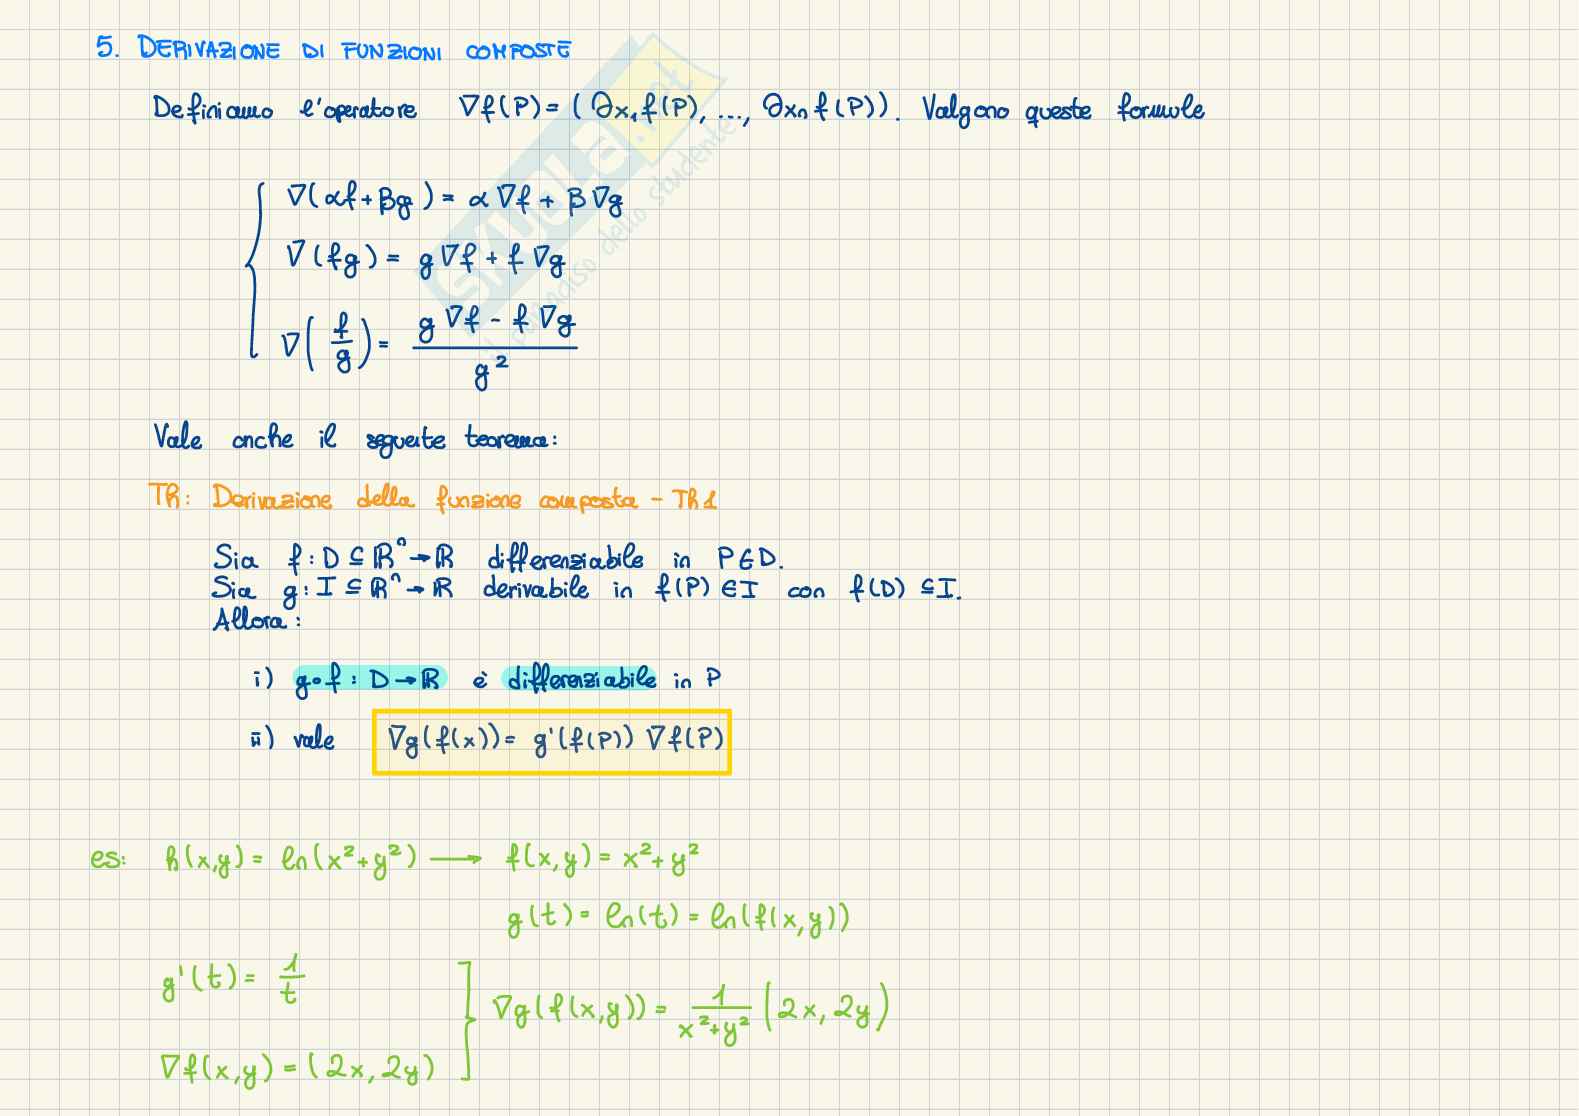 5. DERIVAZIONE DI FUNZIONI COMPOSTE
Definiamo l'operatore ∇f(P) = (∂x₁f(P), ..., ∂xₙf(P)). Valgono queste formule
∇(αf+βg) = α∇f + β∇g
∇(fg) = g∇f + f∇g
∇(f/g) = (g∇f - f∇g)/g²
Vale anche il seguente teorema:
TH: Derivazione della funzione composta - TH 1
Sia f: D ⊆ ℝⁿ → ℝ differenziabile in P∈D.
Sia g: I ⊆ ℝⁿ → ℝ derivabile in f(P) ∈ I con f(D) ⊆ I.
Allora:
i) g∘f : D → ℝ è differenziabile in P
ii) vale ∇g(f(x)) = g'(f(P)) ∇f(P)
es: h(x,y) = ln(x²+y²) → f(x,y) = x²+y²
g(t) = ln(t) = ln(f(x,y))
g'(t) = 1/t
∇g(f(x,y)) = 1/(x²+y²) (2x, 2y)
∇f(x,y) = (2x, 2y)
SKUOLA.net
il paradiso dello studente